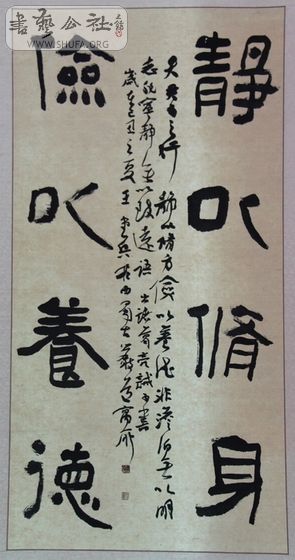 書藝公社
WWW.SHUFA.ORG
靜以脩身
夫君子之行靜以脩身儉以養德非澹泊無以明
志非寧靜無以致遠語出諸葛亮誡子書
歲在己丑之夏王
儉以養德